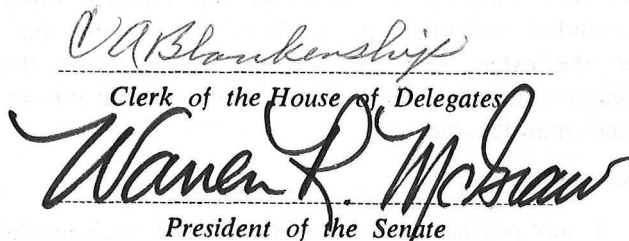 CABlankenship
Clerk of the House of Delegates
Warren R. McGraw
President of the Senate